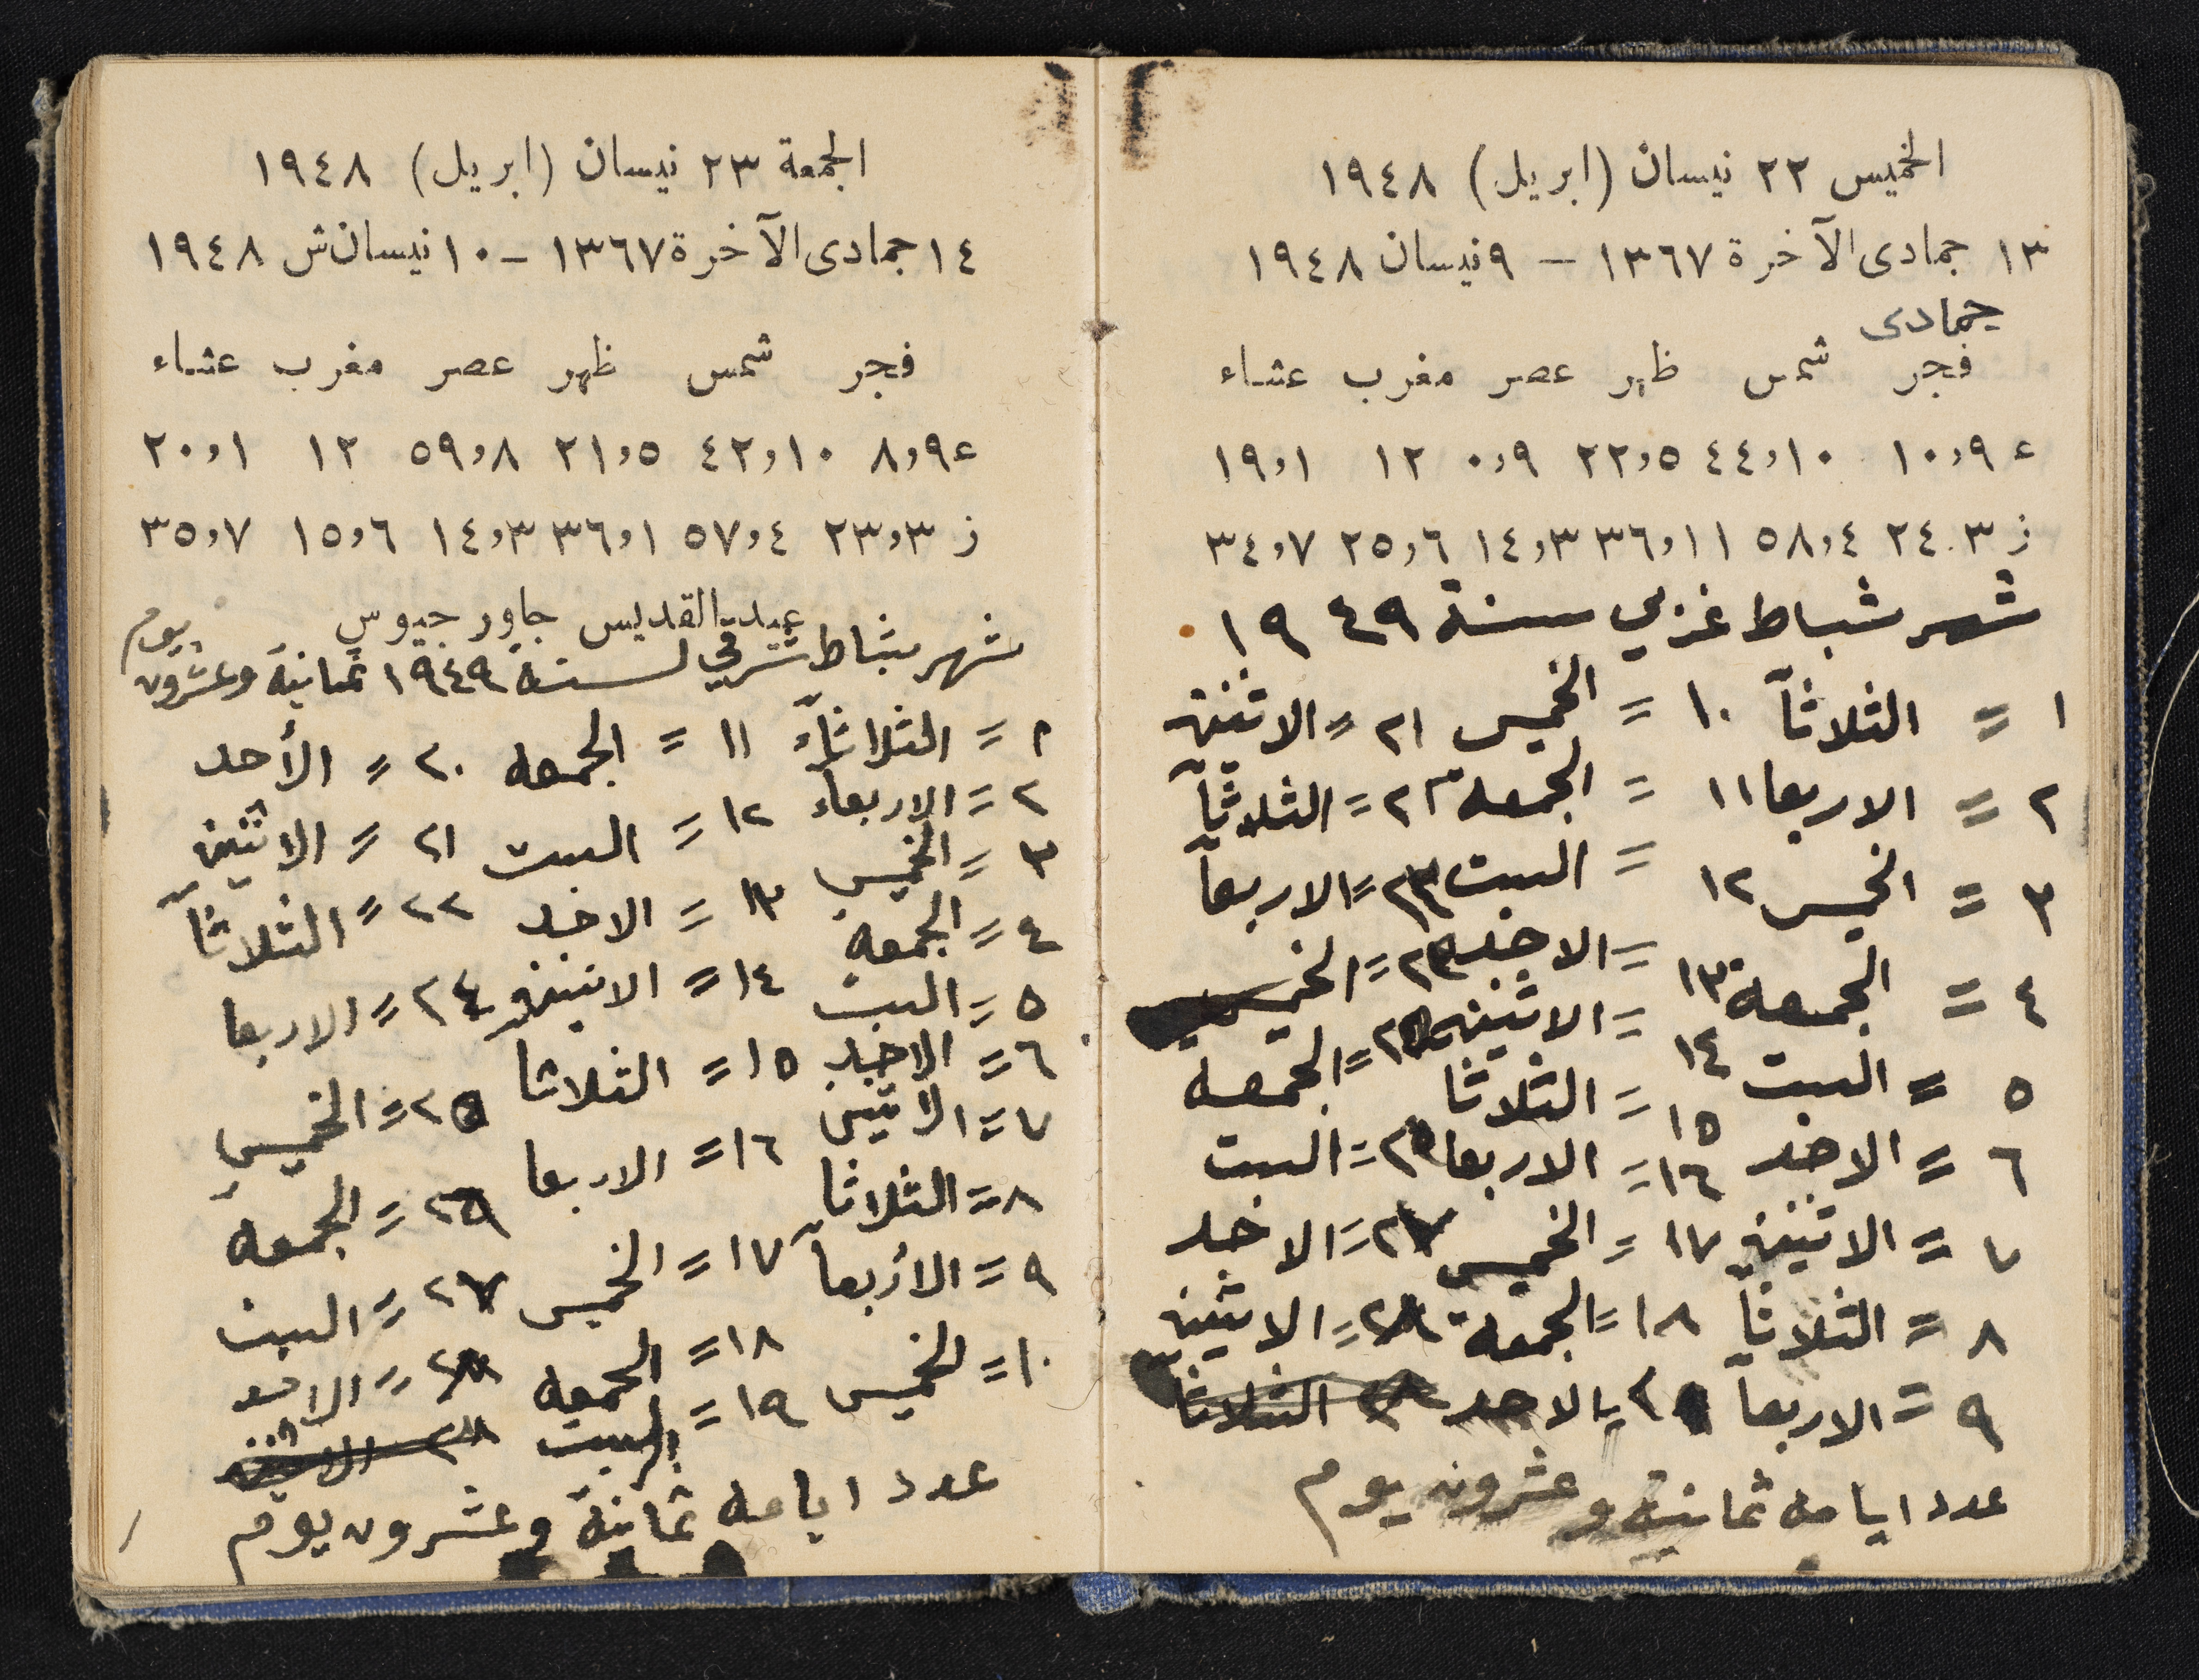 الخميس ٢٢ نيسان (ابريل) ١٩٤٨
١٣ جمادى الآخرة ١٣٦٧ – ٩ نيسان ١٩٤٨
جمادى
فجر شمس ظهر عصر مغرب عشاء
ع ١٠,٩ ٤٤,١٠ ٢٢,٥ ٠,٩ ١٢ ١٩,١
ز ٢٤,٣ ٥٨,٤ ٣٦,١١ ١٤,٣ ٢٥,٦ ٣٤,٧
شهر شباط غربي سنة ١٩٤٩
١ = الثلاثآ ١٠ = الخميس ٢١ = الاثنين
٢ = الاربعا ١١ = الجمعة ٢٢ = الثلاثآ
٣ = الخميس ١٢ = السبت ٢٣ = الاربعآ
٤ = الجمعة ١٣ = الاحد = الخميس
٥ = السبت ١٤ = الاثنين = الجمعه
٦ = الاحد ١٥ = الثلاثا = السبت
٧ = الاثنين ١٦ = الاربعا ٢٧ = الاحد
٨ = الثلاثآ ١٧ = الخميس ٢٨ = الاثنين
٩ = الاربعآ ١٨ = الجمعة الثلاثا
= الاحد
عدد ايامه ثمانية وعشرون يوم
الجمعة ٢٣ نيسان (ابريل) ١٩٤٨
١٤ جمادى الآخرة ١٣٦٧ – ١٠ نيسان ش ١٩٤٨
فجر شمس ظهر عصر مغرب عشاء
ع ٨,٩ ٤٢,١٠ ٢١,٥ ٥٩,٨ ١٢ ٢٠,١
ز ٢٣,٣ ٥٧,٤ ٣٦,١ ١٤,٣ ١٥,٦ ٣٥,٧
عيد القديس جاورجيوس
شهر شباط شرقي لسنة ١٩٤٩ ثمانية وعشرون يوم
١ = الثلاثآء ١١ = الجمعه ٢٠ = الأحد
٢ = الاربعآء ١٢ = السبت ٢١ = الاثنين
٣ = الخميس ١٣ = الاحد ٢٢ = الثلاثآ
٤ = الجمعة ١٤ = الاثنين ٢٤ = الاربعا
٥ = السبت ١٥ = الثلاثا ٢٥ = الخميس
٦ = الاحد ١٦ = الاربعا ٢٦ = الجمعة
٧ = الاثنين ١٧ = الخميس ٢٧ = السبت
٨ = الثلاثا ١٨ = الجمعه ٢٨ = الاحد
٩ = الأربعآ ١٩ = السبت الاثنين
١٠ = الخميس
عدد ايامه ثمانية وعشرون يوم